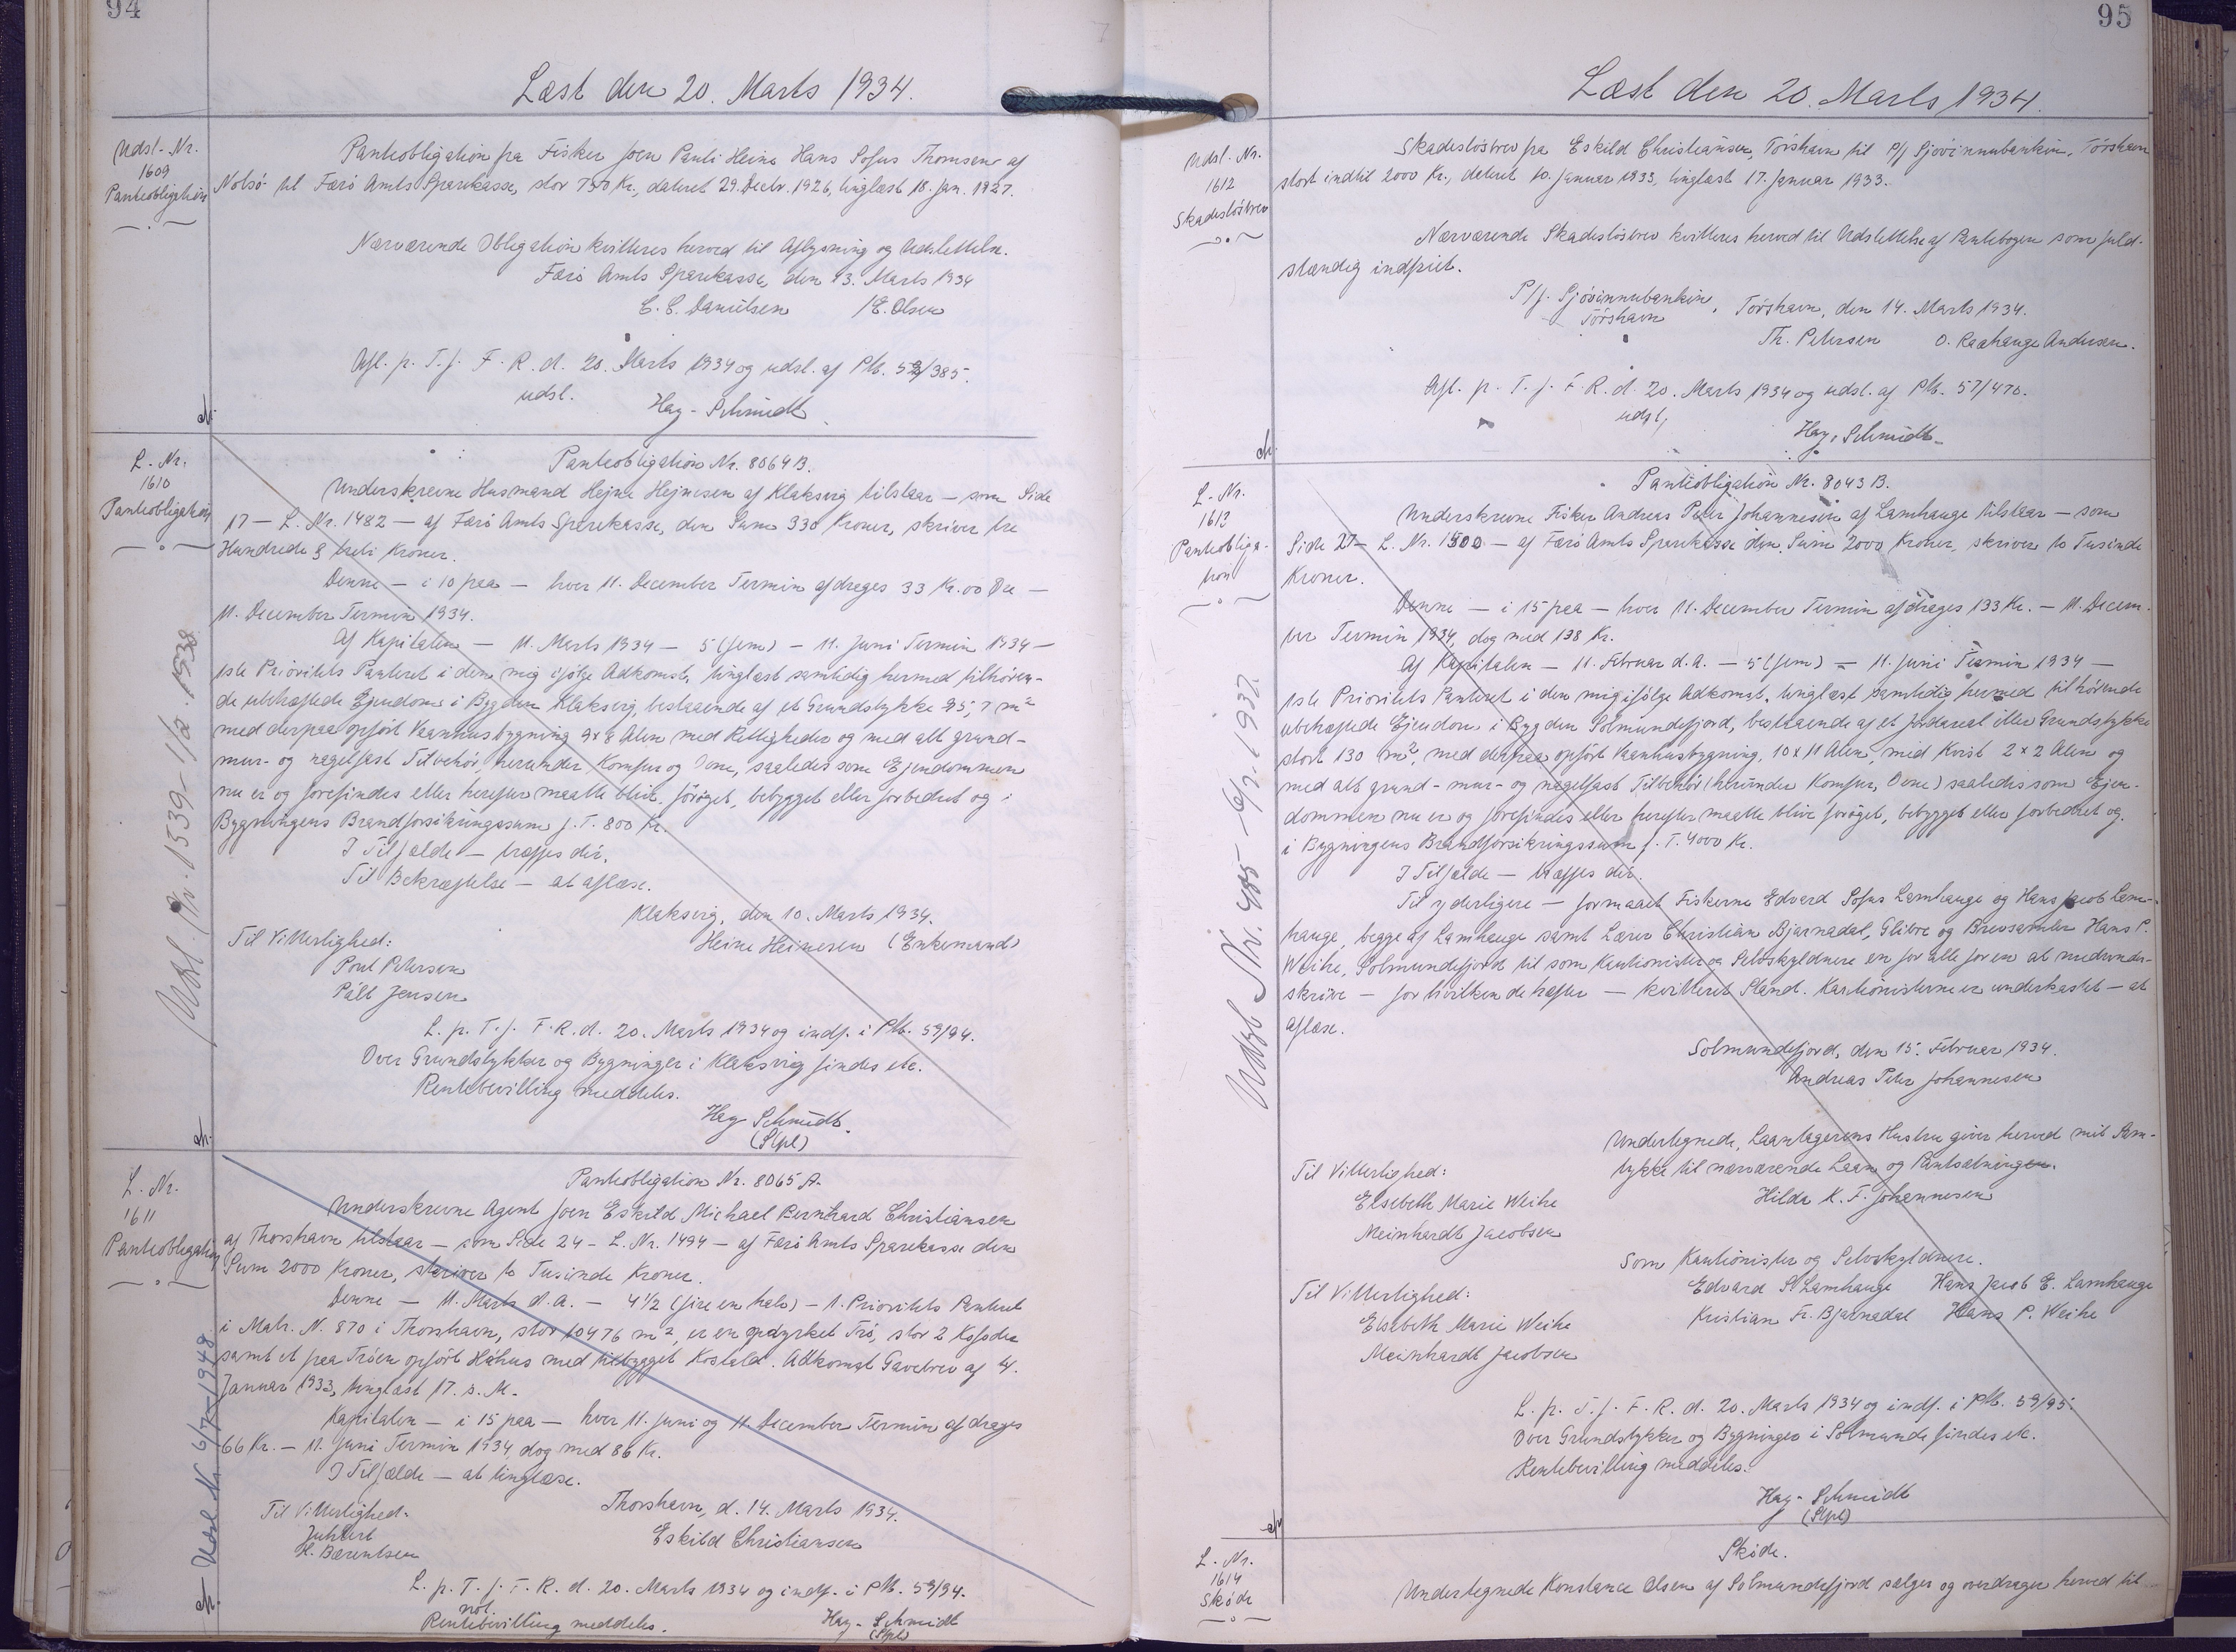 94
Læst den 20. Marts 1934.
Udsl.-Nr.
1609
Panteobligation
Panteobligation fra Fisker Joen Pauli Heine Hans Sofus Thomsen af
Nolsö til Færö Amts Sparekasse, stor 750 Kr., dateret 29. Decbr. 1926, tinglæst 18. Jan. 1927.
Nærværende Obligation kvitteres herved til Aflysning og Udslettelse.
Færö Amts Sparekasse, den 13. Marts 1934
C. C. Danielsen /E. Olsen
Afl. p. T. f. F. R. d. 20. Marts 1934 og udsl. af Pb. 52/385.
udsl.
Hay-Schmidt
L. Nr.
1610
Panteobligation
Panteobligation Nr. 8064 B.
Underskrevne Husmand Hejne Hejnesen af Klaksvig tilstaar — som Side
17 — L. Nr. 1482 — af Færö Amts Sparekasse, den Sum 330 Kroner, skriver tre
Hundrede & treti Kroner.
Denne — i 10 paa — hver 11. December Termin afdrages 33 Kr. 00 Øre —
11. December Termin 1934.
Af Kapitalen — 11. Marts 1934 — 5 (fem) — 11. Juni Termin 1934 —
1ste Prioritets Panteret i den mig ifölge Adkomst, tinglæst samtidig hermed tilhören-
de ubehæftede Ejendom i Bygden Klaksvig, bestaaende af et Grundstykke 95,7 m²
med derpaa opfört Vaanhusbygning 9x8 Alen med Rettigheder og med alt grund-
mur- og nagelfast Tilbehör, herunder Komfur og Ovne, saaledes som Ejendommen
nu er og forefindes eller herefter maatte blive foröget, bebygget eller forbedret og i
Bygningens Brandforsikringssum f. T. 800 Kr.
I Tilfælde — træffes dér.
Til Bekræftelse — at aflæse.
Klaksvig, den 10. Marts 1934.
Heine Heinesen (Enkemand)
Til Vitterlighed:
Poul Petersen
Páll Jensen
L. p. T. f. F. R. d. 20. Marts 1934 og indf. i Pb. 59/94.
Over Grundstykker og Bygninger i Klaksvig findes etc.
Rentebevilling meddeles.
Hay Schmidt.
(Stpl)
Udsl. Nr. 1539 - 1/2. 1938
L. Nr.
1611
Panteobligation
Panteobligation Nr. 8065 A.
Underskrevne Agent Joen Eskild Michael Bernhard Christiansen
af Thorshavn tilstaar — som Side 24 - L. Nr. 1494 — af Færö Amts Sparekasse den
Sum 2000 Kroner, skriver to Tusinde Kroner.
Denne — 11. Marts d. A. — 4 1/2 (fire en halv) — 1. Prioritets Panteret
i Matr. N. 870 i Thorshavn, stor 10476 m², er en opdyrket Trö, stor 2 Kofoder
samt et paa Tröen opfört Höhus med tilbygget Kostald. Adkomst Gavebrev af 4.
Januar 1933, tinglæst 17. s. M.
Kapitalen — i 15 paa — hver 11. Juni og 11. December Termin afdrages
66 Kr. — 11. Juni Termin 1934, dog med 86 Kr.
I Tilfælde — at tinglæse.
Thorshavn, d. 14. Marts 1934.
Eskild Christiansen
Til Vitterlighed:
H. Bærentsen
L. p. T. f. F. R. d. 20. Marts 1934 og indf. i Pb. 59/94.
not.
Rentebevilling meddeles.
Hay-Schmidt
(Stpl)
Udsl Nr. 6/7-1948
95
Læst den 20. Marts 1934.
Udsl. Nr.
1612
Skadeslösbrev
Skadeslösbrev fra Eskild Christiansen, Tórshavn til P/f Sjóvinnubankin, Tórshavn
stort indtil 2000 Kr., dateret 10. Januar 1933, tinglæst 17. Januar 1933.
Nærværende Skadeslösbrev kvitteres herved til Udslettelse af Pantebogen som fuld-
stændig indfriet.
P/f. Sjóvinnubankin, Tórshavn, den 14. Marts 1934.
Tórshavn
Th. Petersen O. Raahauge Andersen.
Afl. p. T. f. F. R. d. 20. Marts 1934 og udsl. af Pb. 57/470.
udsl,
Hay-Schmidt
L. Nr.
1613
Panteobliga-
tion
Panteobligation Nr. 8043 B.
Underskrevne Fisker Andreas Peter Johannesen af Lamhauge tilstaar — som
Side 27 — L. Nr. 1500 — af Færö Amts Sparekasse den Sum 2000 Kroner, skriver to Tusinde
Kroner.
Denne — i 15 paa — hver 11. December Termin afdrages 133 Kr. — 11. Decem-
ber Termin 1934, dog med 138 Kr.
Af Kapitalen — 11. Februar d. A. — 5 (fem) — 11. Juni Termin 1934 —
1ste Prioritets Panteret i den mig ifölge Adkomst, tinglæst samtidig hermed tilhörende
ubehæftede Ejendom i Bygden Solmundefjord, bestaaende af et Jordareal eller Grundstykke
stort 130 m², med derpaa opfört Vaanhusbygning, 10 x 11 Alen, med Kvist 2 x 2 Alen og
med alt grund- mur- og nagelfast Tilbehör (herunder Komfur, Ovne) saaledes som Ejen-
dommen nu er og forefindes eller herefter maatte blive foröget, bebygget eller forbedret og
i Bygningens Brandforsikringssum f. T. 4000 Kr.
I Tilfælde — træffes dér.
Til yderligere — formaaet Fiskerne Edvard Sofus Lamhauge og Hans Jacob Lam-
hauge, begge af Lamhauge samt Lærer Christian Bjarnadal, Glibre og Brevsamler Hans P.
Weihe, Solmundefjord til som Kautionister og Selvskyldnere en for alle for en at medunder-
skrive — for hvilken de hæfter — kvitteret Stand. Kautionisterne er underkastet — at
aflæse.
Solmundefjord, den 15. Februar 1934.
Andreas Peter Johannesen
Undertegnede, Laantagerens Hustru giver herved mit Sam-
tykke til nærværende Laan og Pantsætningen.
Hilda K. F. Johannesen
Til Vitterlighed:
Elsebeth Marie Weihe
Meinhardt Jacobsen
Som Kautionister og Selvskyldnere.
Edvard S. Lamhauge Hans Jacob E. Lamhauge
Kristian Fr. Bjarnadal Hans P. Weihe
Til Vitterlighed:
Elsebeth Marie Weihe
Meinhardt Jacobsen
L. p. T. f. F. R. d. 20. Marts 1934 og indf. i Pb. 59/95.
Over Grundstykker og Bygninger i Solmunde findes etc.
Rentebevilling meddeles.
Hay-Schmidt
(Stpl)
Udsl Nr. 485 - 6/9. 1937.
L. Nr.
1614
Sköde
Sköde.
Undertegnede Konstance Olsen af Solmundefjord sælger og overdrager herved til